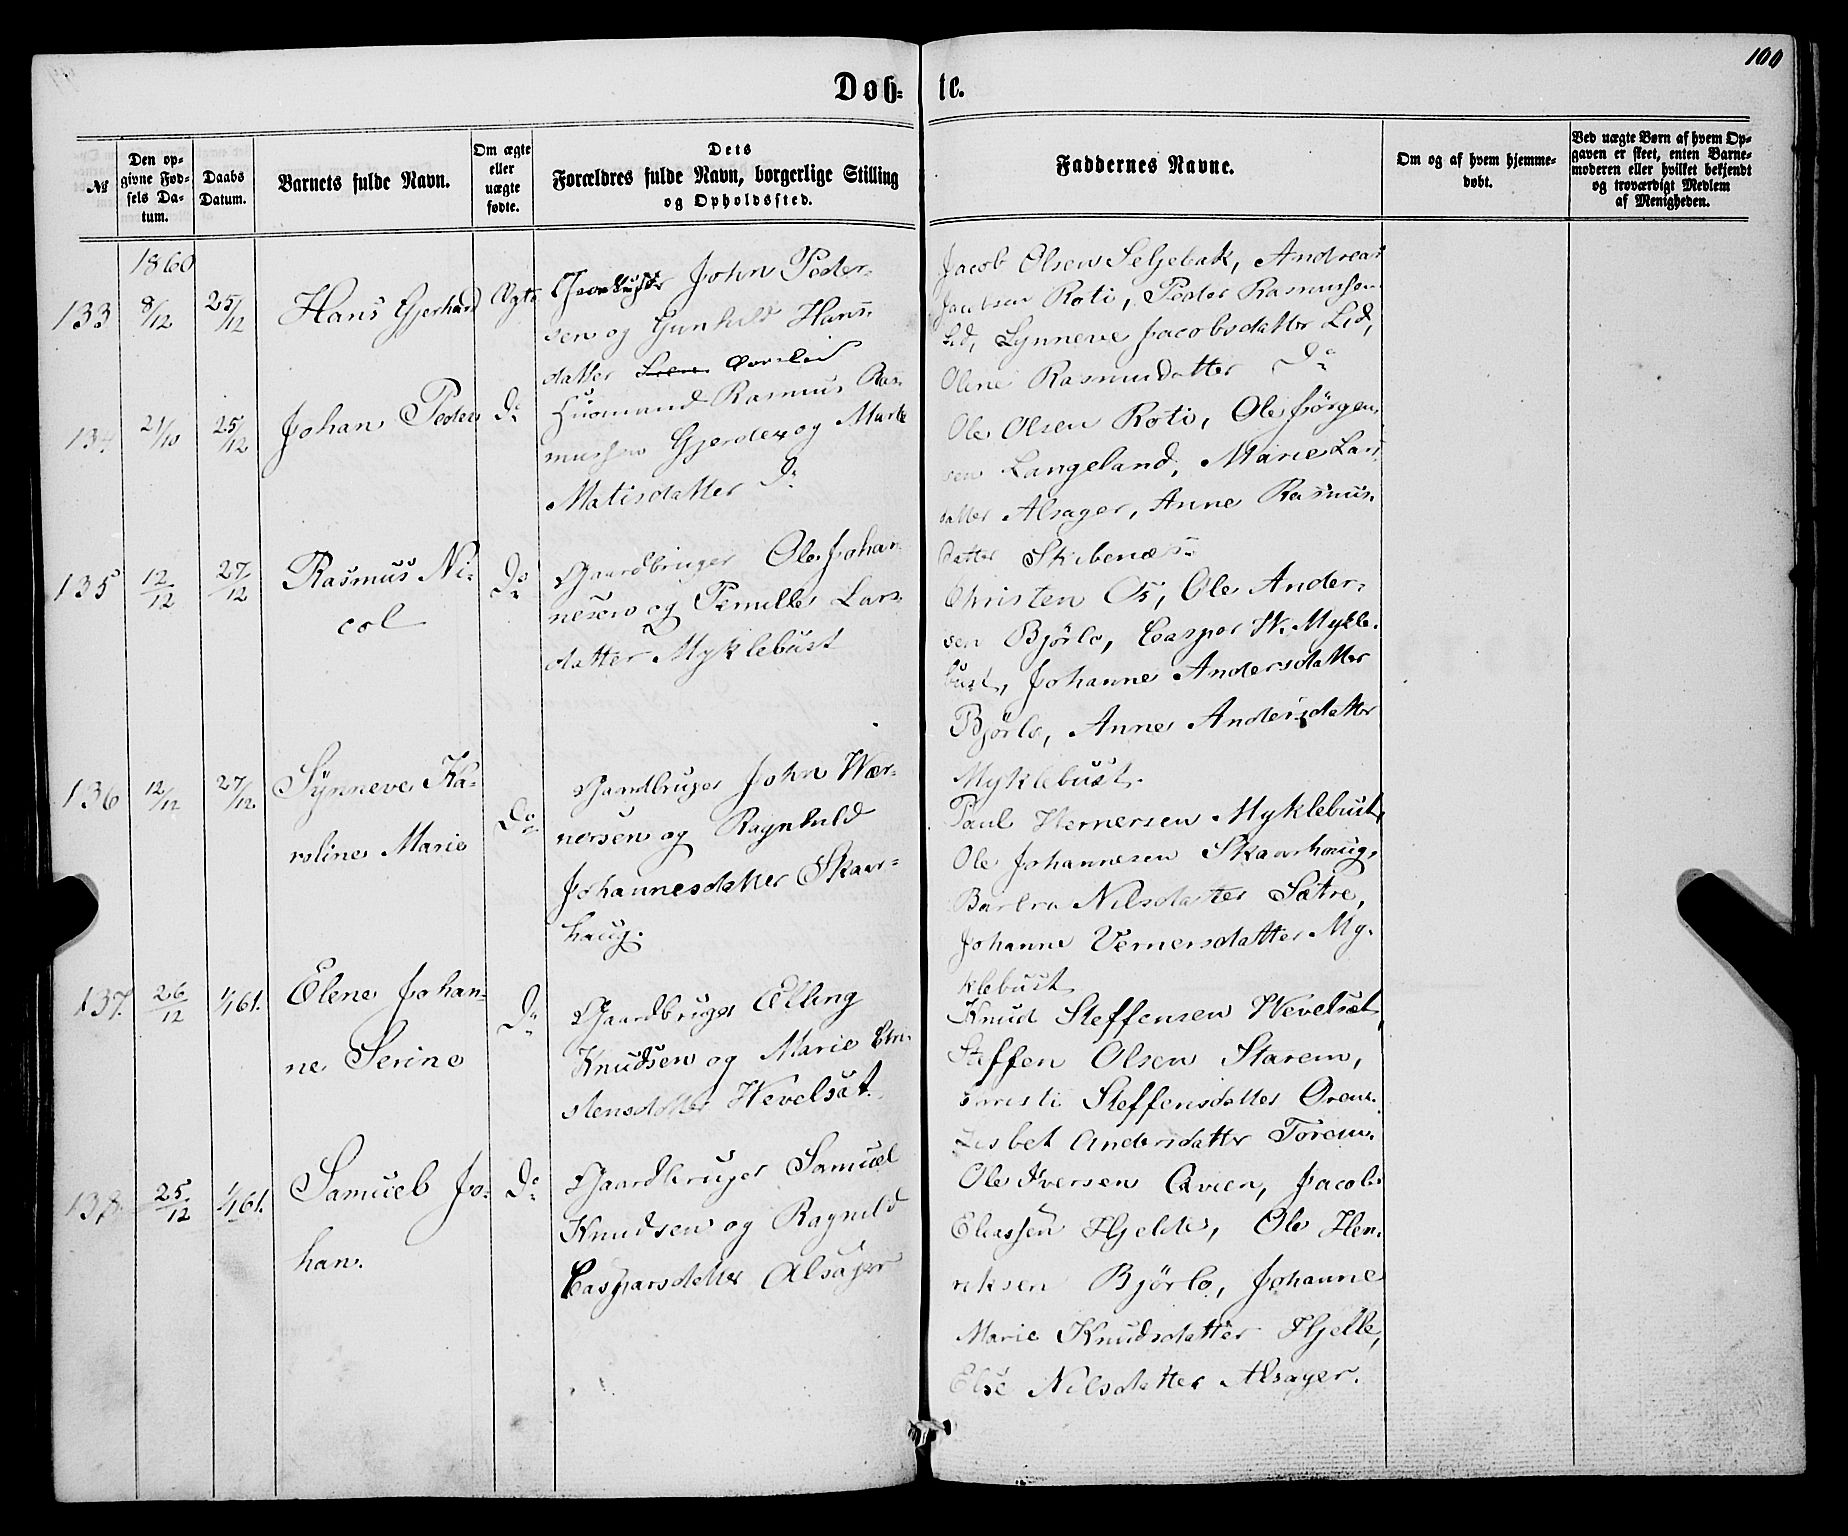 100
Dobte.
№
Den opgivne Fødsels Datum.
Daabs Datum.
Barnets fulde Navn.
Om ægte eller uægte fødte.
Dets Forældres fulde Navn, borgerlige Stilling og Opholdssted.
Faddernes Navne.
Om og af hvem hjemmedobt.
Ved uægte Børn af hvem Opgaven er skeet, enten Barnemoderen eller hvilket bekjendt og troværdigt Medlem af Menigheden.
1860
133
8/12
25/12
Hans Gjerhard
Ægte
John Peder-
sen og Gunhild Hans-
datter
Jacob Olsen Seljebak, Andreas
Jacobsen Roti, Peder Rasmussen
Lid, Synneve Jacobsdatter Lid,
Oline Rasmusdatter Do
134
21/10
25/12
Johan Peder
Do
Huusmand Rasmus Ras-
mussen Gjerde og Marte
Matisdatter Do
Ole Olsen Roti, Ole Jörgen-
sen Langeland, Marie Lars-
datter Alsager, Anne Rasmus-
datter Skibenæs
135
12/12
27/12
Rasmus Ni-
col
Do
Gaardbruger Ole Johan-
nesen og Pernille Lars-
datter Myklebust
Christen Os, Ole Ander-
sen Bjørlo, Casper W. Mykle-
bust, Johanne Andersdatter
Bjørlo, Anne Andersdatter
Myklebust.
136
12/12
27/12
Synneve Ka-
roline Marie
Do
Gaardbruger John Wær-
nersen og Ragnhild
Johannesdatter Skaar-
haug.
Paul Wernersen Myklebust,
Ole Johannesen Skaarhaug,
Barbra Nilsdatter Sætre,
Johanne Vernersdatter My-
klebust
137.
26/12
1/1 61.
Elene Johan-
ne Serine
Do
Gaardbruger Elling
Knudsen og Marie
stensdatter Hevelsæt.
Knud Steffensen Hevelsæt,
Steffen Olsen Starem,
Steffensdatter
Lisbet Andersdatter
138.
25/12
1/1 61.
Samuel Jo-
han.
Do
Gaardbruger Samuel
Knudsen og Ragnild
Caspersdatter Alsager
Ole Iversen Qvien, Jacob
Eliassen Hjelle, Ole Hen-
riksen Bjørlo, Johanne
Marie Knudsdatter Hjelle,
Else Nilsdatter Alsager.